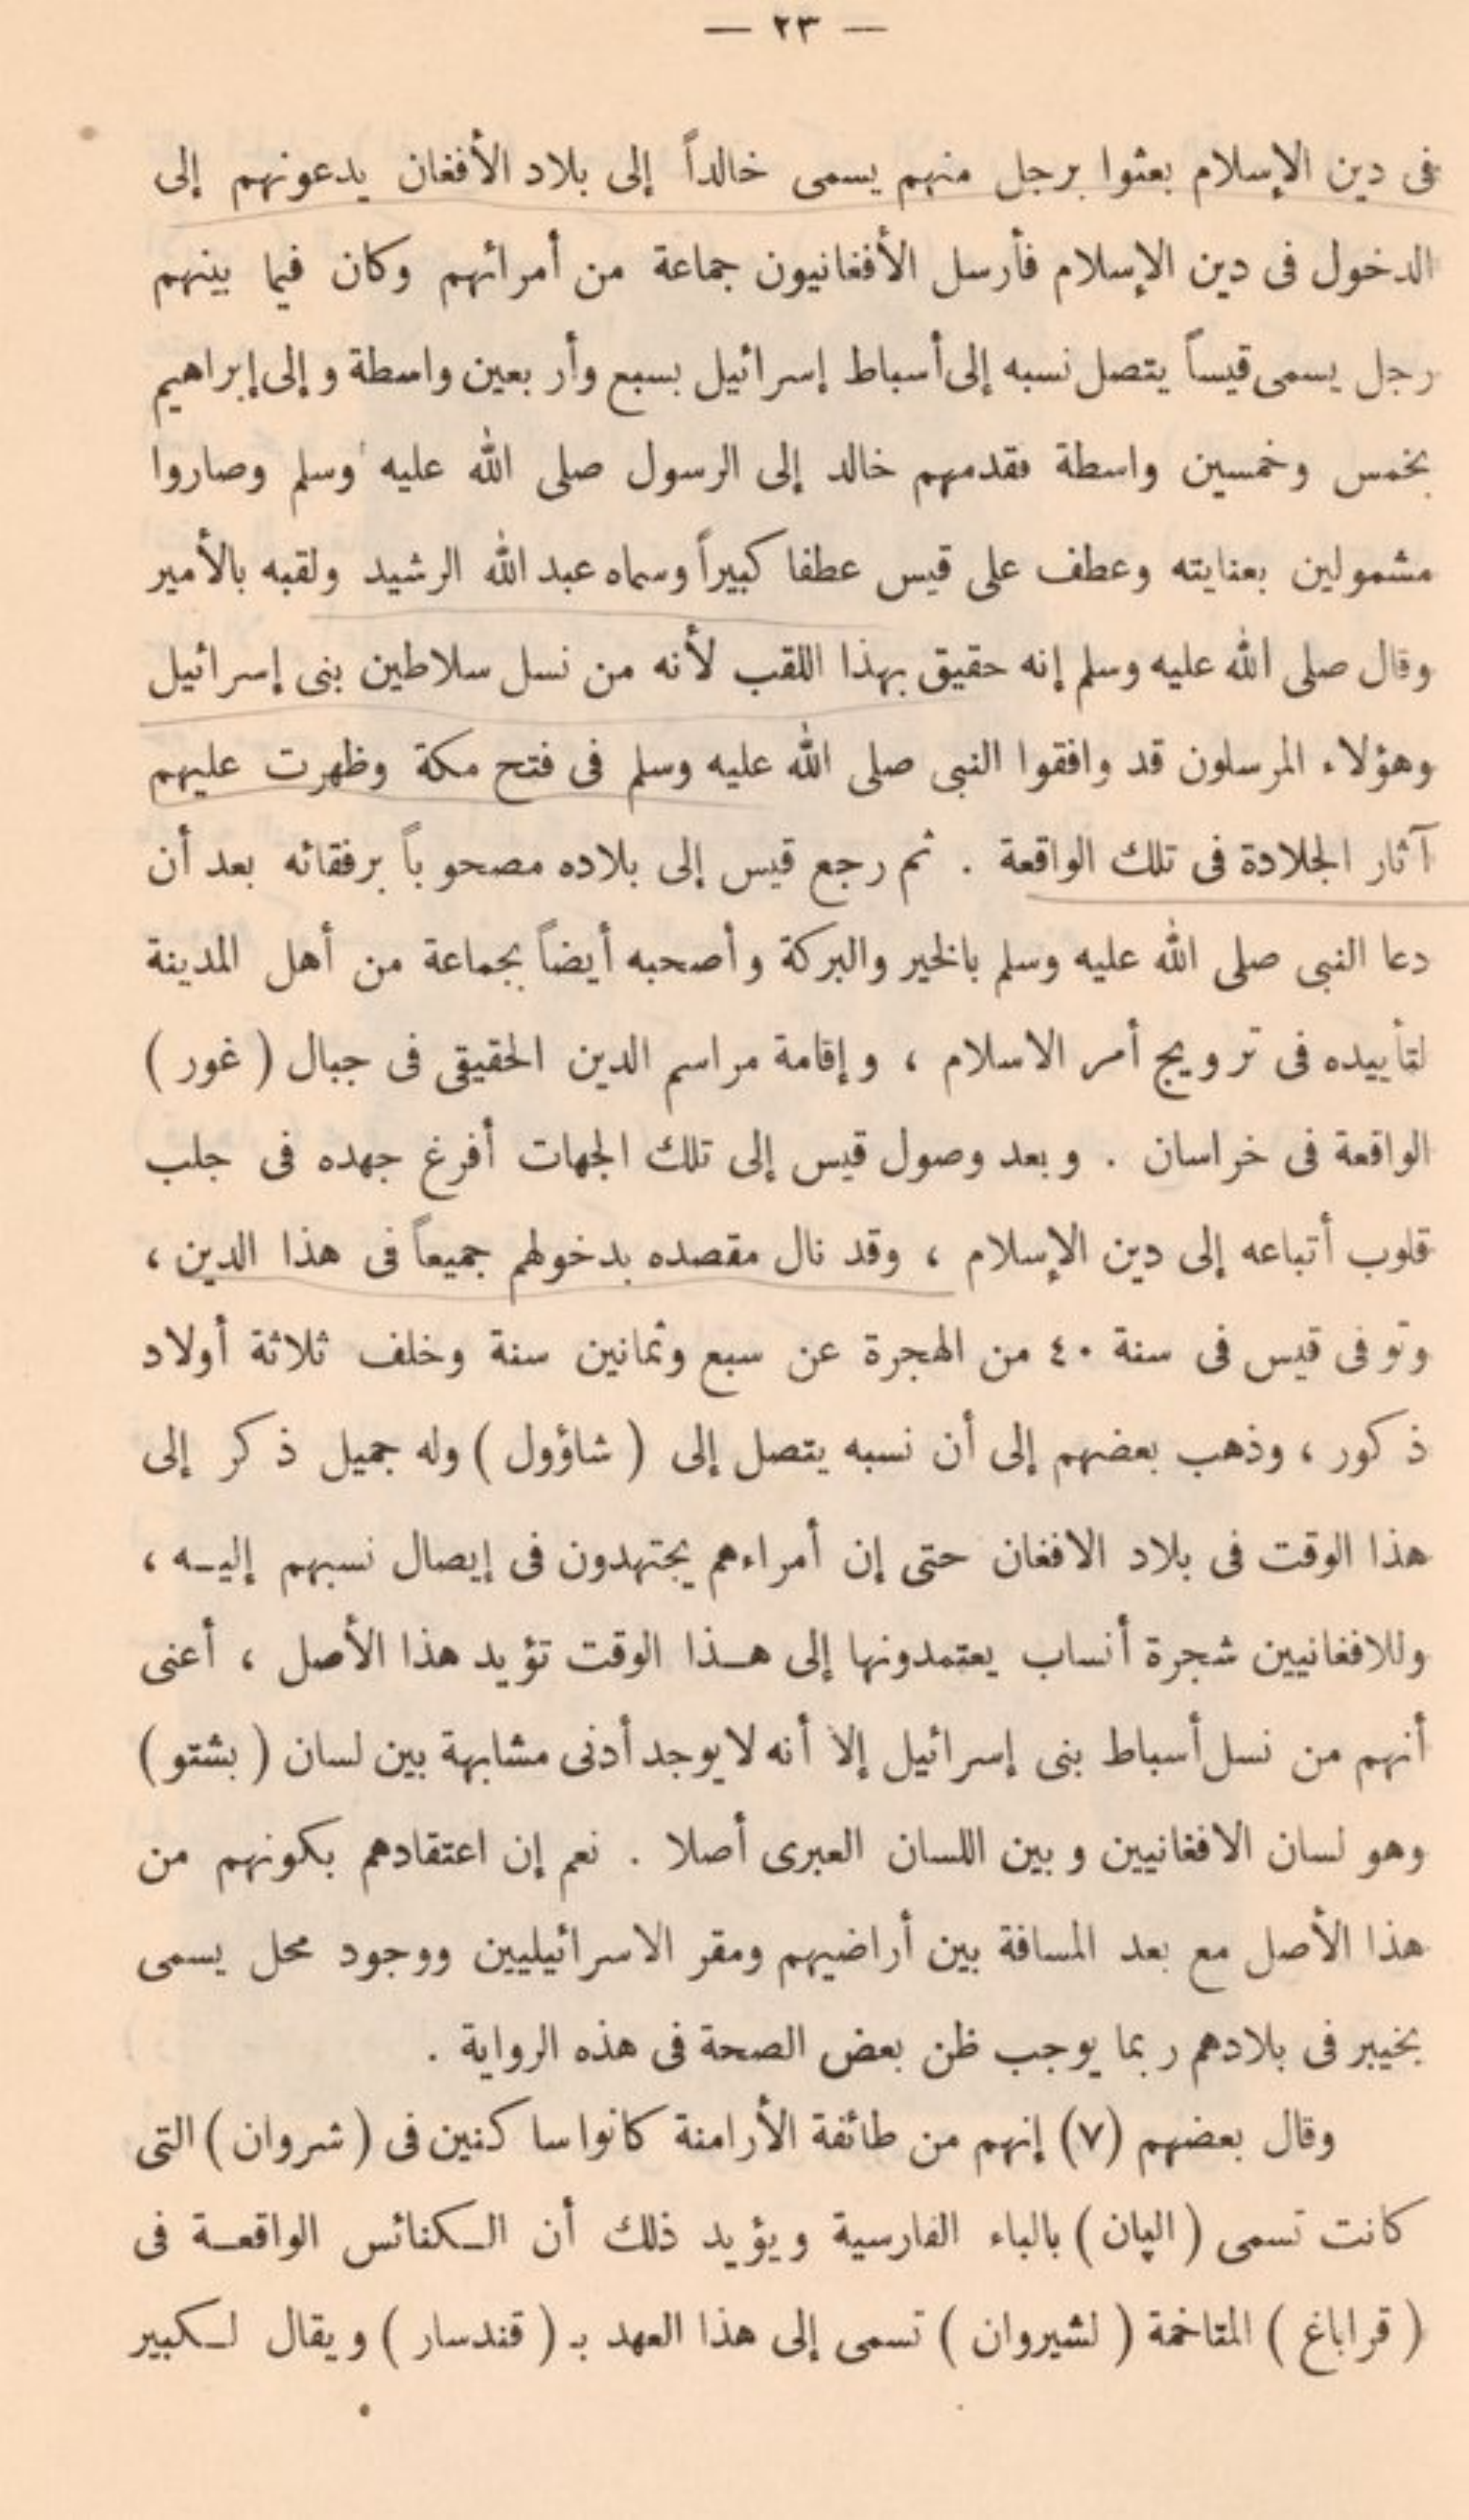 — ٢٣ —
فى دين الإسلام بعثوا برجل منهم يسمى خالداً إلى بلاد الأفغان يدعونهم إلى
الدخول فى دين الإسلام فأرسل الأفغانيون جماعة من أمرائهم وكان فيما بينهم
رجل يسمى قيساً يتصل نسبه إلى أسباط إسرائيل بسبع وأربعين واسطة وإلى إبراهيم
بخمس وخمسين واسطة فقدمهم خالد إلى الرسول صلى الله عليه وسلم وصاروا
مشمولين بعنايته وعطف على قيس عطفا كبيراً وسماه عبد الله الرشيد ولقبه بالأمير
وقال صلى الله عليه وسلم إنه حقيق بهذا اللقب لأنه من نسل سلاطين بنى إسرائيل
وهؤلاء المرسلون قد وافقوا النبى صلى الله عليه وسلم فى فتح مكة وظهرت عليهم
آثار الجلادة فى تلك الواقعة . ثم رجع قيس إلى بلاده مصحوباً برفقائه بعد أن
دعا النبى صلى الله عليه وسلم بالخير والبركة وأصحبه أيضاً بجماعة من أهل المدينة
لتأييده فى ترويج أمر الاسلام ، وإقامة مراسم الدين الحقيقى فى جبال ( غور )
الواقعة فى خراسان . وبعد وصول قيس إلى تلك الجهات أفرغ جهده فى جلب
قلوب أتباعه إلى دين الإسلام ، وقد نال مقصده بدخولهم جميعاً فى هذا الدين ،
وتوفى قيس فى سنة ٤٠ من الهجرة عن سبع وثمانين سنة وخلف ثلاثة أولاد
ذكور ، وذهب بعضهم إلى أن نسبه يتصل إلى ( شاؤول ) وله جميل ذكر إلى
هذا الوقت فى بلاد الافغان حتى إن أمراءهم يجتهدون فى إيصال نسبهم إليـه ،
وللافغانيين شجرة أنساب يعتمدونها إلى هـذا الوقت تؤيد هذا الأصل ، أعنى
أنهم من نسل أسباط بنى إسرائيل إلا أنه لا يوجد أدنى مشابهة بين لسان ( بشتو )
وهو لسان الافغانيين وبين اللسان العبرى أصلا . نعم إن اعتقادهم بكونهم من
هذا الأصل مع بعد المسافة بين أراضيهم ومقر الاسرائيليين ووجود محل يسمى
بخيبر فى بلادهم ربما يوجب ظن بعض الصحة فى هذه الرواية .
وقال بعضهم (٧) إنهم من طائفة الأرامنة كانوا ساكنين فى ( شروان ) التى
كانت تسمى ( الپان ) بالباء الفارسية ويؤيد ذلك أن الـكنائس الواقعـة فى
( قراباغ ) المتاخمة ( لشيروان ) تسمى إلى هذا العهد بـ ( قندسار ) ويقال لـكبير